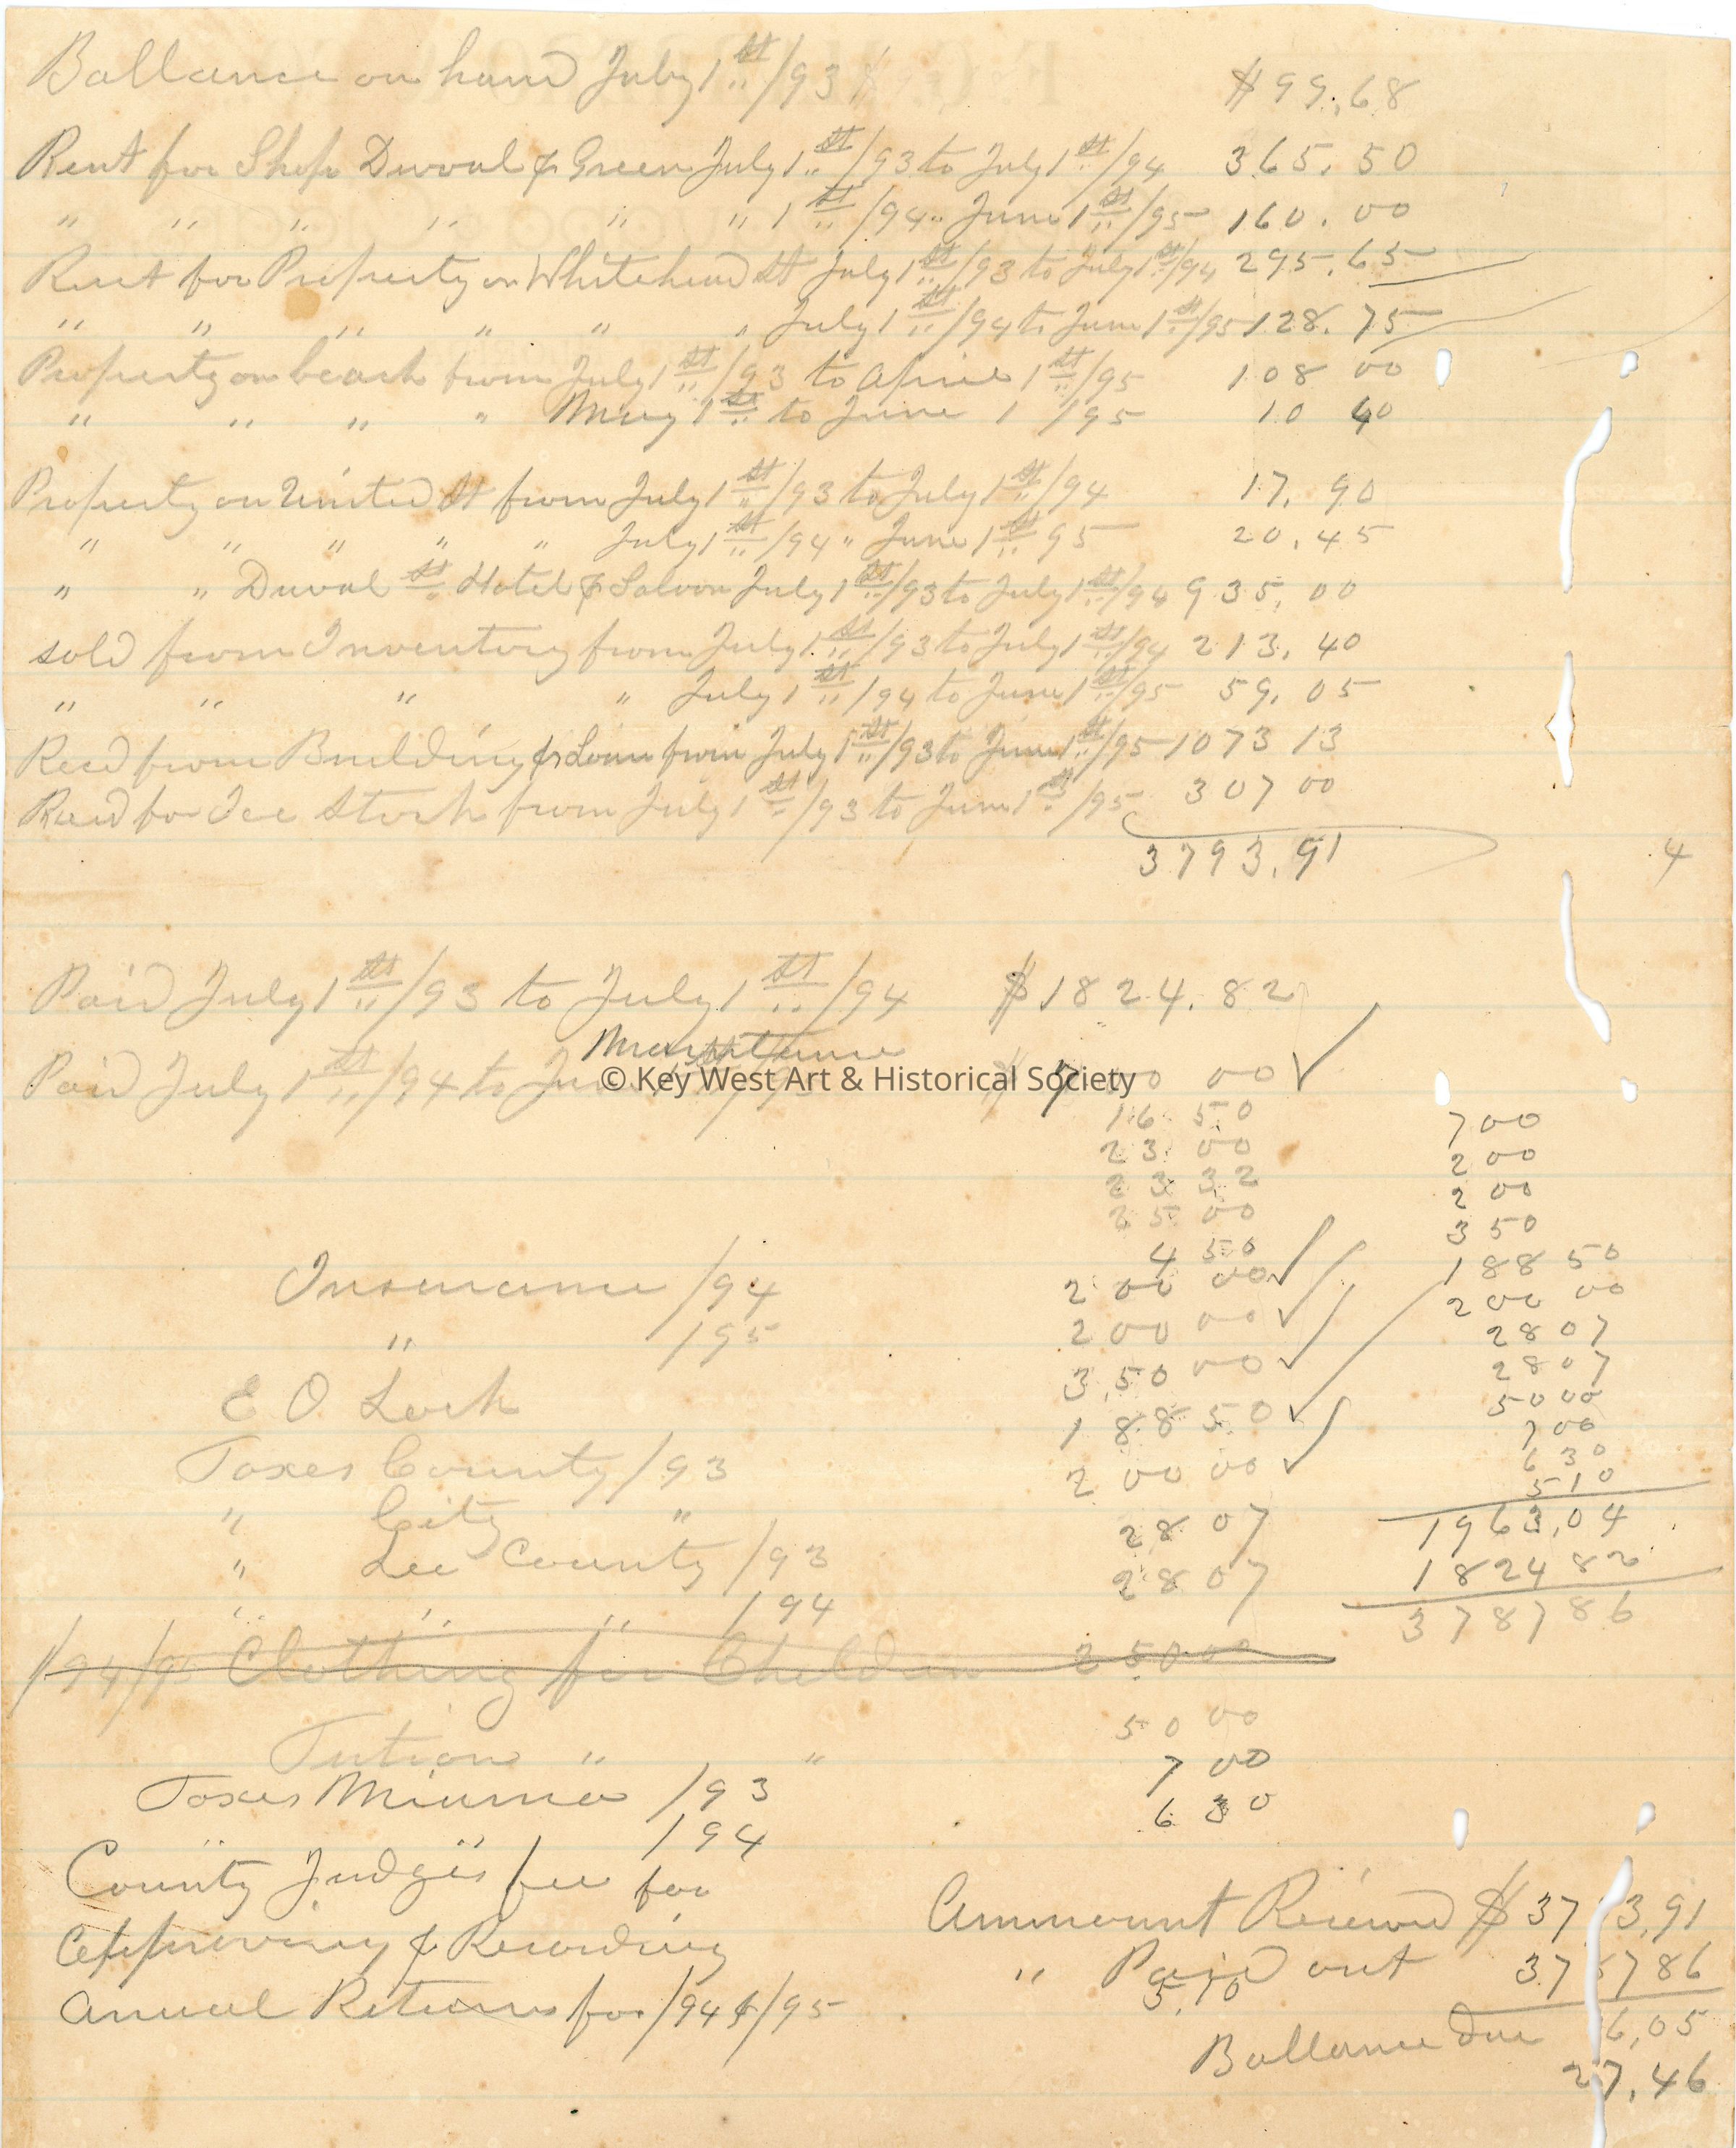 Ballance on hand July 1st/93 $99.68
Rent for Shop Duval & Green July 1st/93 to July 1st/94 365.50
" " " " " " 1st/94 " June 1st/95 160.00
Rent for Property on Whitehead St July 1st/93 to July 1st/94 295.65
" " " " " " July 1st/94 to June 1st/95 128.75
Property on beach from July 1st/93 to Aprie 1st/95 108 00
" " " " May 1st to June 1 /95 10 40
Property on United St from July 1st/93 to July 1st/94 17.90
" " " " " July 1st/94 " June 1st 95 20.45
" " Duval St Hotel & Saloon July 1st/93 to July 1st/94 935.00
sold from Inventory from July 1st/93 to July 1st/94 213.40
" " " " July 1st/94 to June 1st/95 59.05
Recd from Building & Loan from July 1st/93 to June 1st/95 1073 13
Recd for Ice Stock from July 1st/93 to June 1st/95 307 00
3793.91
4
Paid July 1st/93 to July 1st/94 $1824.82
Maintance
Paid July 1st/94 to June 1st/95 $ 700 00
© Key West Art & Historical Society
16 50 700
23 00 200
23 32 200
25 00 350
4 50 188 50
Insurance /94 200 00 200 00
" /95 200 00 28 07
E O Lock 350 00 28 07
Taxes County /93 188 50 50 00
" City " 200 00 7 00
" Lee County /93 28 07 6 30
" " " /94 28 07 5 10
1963.04
1824 82
3787 86
/94/95 Clothing for Children 250 00
Tution " " 50 00
Taxes Miama /93 7 00
" " /94 6 30
County Judges fee for
Approving & Recording
Annual Returns for /94 & /95 5.10
Ammount Recieved $ 37 3.91
" Paid out 37 7 86
Ballance due 6.05
27.46